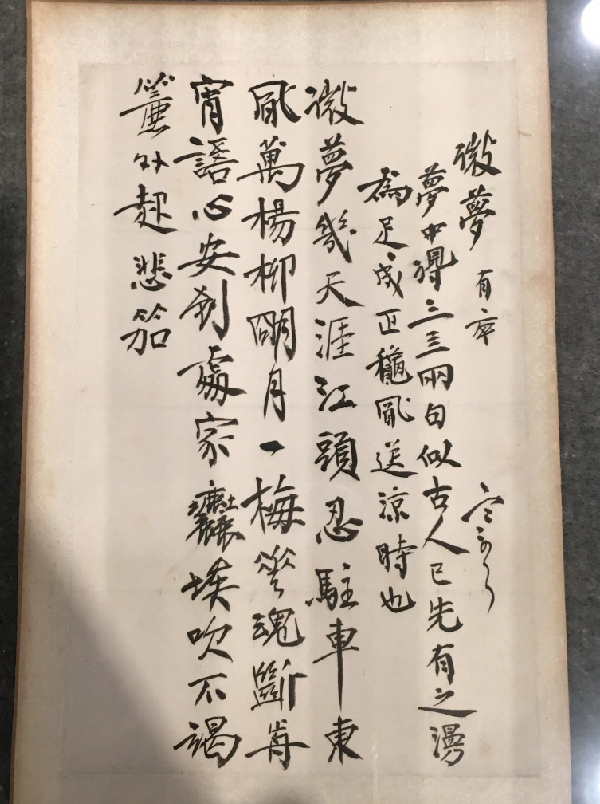 微夢 有
夢中得二三兩句似古人已先有之漫
為足成正龝風送涼時也
微夢幾天涯江頭忍駐車東
風萬楊柳朙月一梅花魂斷歬
宵語心安到處家塵埃吹不竭
簾外起悲笳